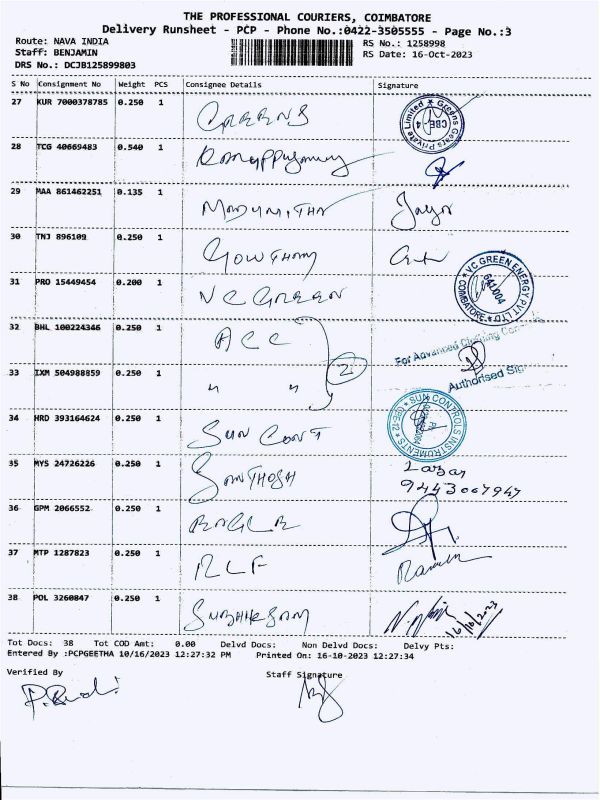 THE PROFESSIONAL COURIERS, COIMBATORE
Delivery Runsheet - PCP - Phone No.:0422-3505555 - Page No.:3
Route: NAVA INDIA
RS No.: 1258998
Staff: BENJAMIN
RS Date: 16-Oct-2023
DRS No.: DCJB125899803
S No Consignment No Weight PCS Consignee Details Signature
27 KUR 7000378785 0.250 1 GREENS
Greens Gears Private Limited ★ CBE-4
28 TCG 40669483 0.540 1
29 MAA 861462251 0.135 1 MADUMITHA
30 TNJ 896109 0.250 1 GOWTHAM
31 PRO 15449454 0.200 1 VC GREEN
VC GREEN ENERGY PVT LTD ★ COIMBATORE ★ 641 004
32 BHL 100224346 0.250 1 ACC
For Advanced
33 IXM 504988859 0.250 1 " " 2
Authorised
34 HRD 393164624 0.250 1 SUN CONT
SUN CONTROLS INSTRUMENTS ★ CBE-12 ★
35 MYS 24726226 0.250 1 SANTHOSH
9443067947
36 GPM 2066552 0.250 1 EAGLE
37 MTP 1287823 0.250 1 RLF
38 POL 3260847 0.250 1
16/10/2023
Tot Docs: 38 Tot COD Amt: 0.00 Delvd Docs: Non Delvd Docs: Delvy Pts:
Entered By :PCPGEETHA 10/16/2023 12:27:32 PM Printed On: 16-10-2023 12:27:34
Verified By Staff Signature